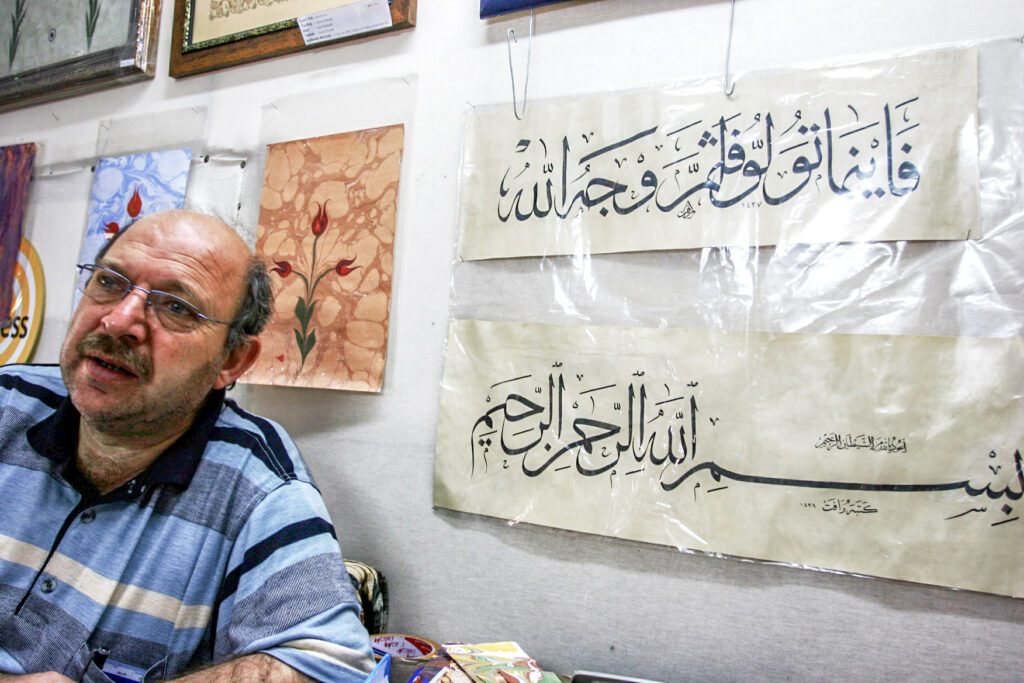 فأينما تولوا فثم وجه الله
١٤٢٧
أعوذ بالله من الشيطان الرجيم
بسم الله الرحمن الرحيم
كتبه رأفت ١٤٢٨
ess